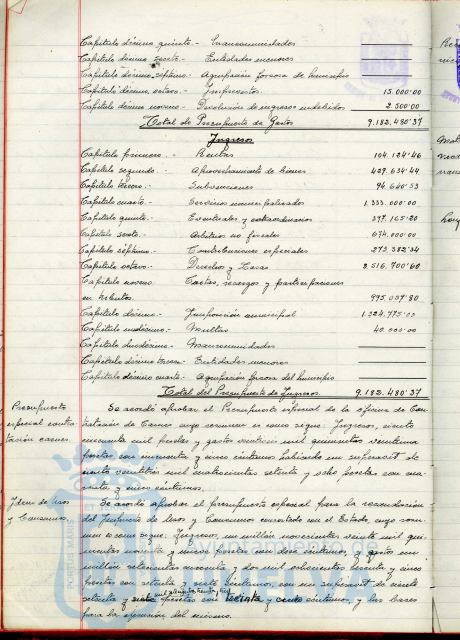 Capítulo décimo quinto.- Mancomunidades
Capítulo décimo sexto.- Entidades menores
Capítulo décimo séptimo.- Agrupación forzosa de Municipio
Capítulo décimo octavo.- Imprevistos 15.000'00
Capítulo décimo noveno.- Devolución de ingresos indebidos 2.500'00
Total de Presupuesto de Gastos 9.182.480'37
Ingresos
Capítulo primero.- Rentas 104.124'46
Capítulo segundo.- Aprovechamiento de bienes 429.634'44
Capítulo tercero.- Subvenciones 94.640'53
Capítulo cuarto.- Servicios municipalizados 1.333.000'00
Capítulo quinto.- Eventuales y extraordinarios 397.165'20
Capítulo sexto.- Arbitrios no fiscales 674.000'00
Capítulo séptimo.- Contribuciones especiales 273.382'34
Capítulo octavo.- Derechos y Tasas 2.516.700'60
Capítulo noveno Cuotas, recargos y participaciones
en tributos 995.057'80
Capítulo décimo.- Imposición municipal 1.324.775'00
Capítulo undécimo.- Multas 40.000'00
Capítulo duodécimo.- Mancomunidades
Capítulo décimo tercero.- Entidades menores
Capítulo décimo cuarto.- Agrupación forzosa del Municipio
Total del Presupuesto de Ingresos 9.182.480'37
Presupuesto
especial contra-
tación carnes.
Se acordó aprobar el Presupuesto especial de la oficina de Con-
tratación de Carnes cuyo resumen es como sigue: Ingresos, ciento
cincuenta mil pesetas y gastos veintiseis mil quinientas veintiuna
pesetas con cincuenta y cinco céntimos habiendo un superavit de
ciento veintitrés mil cuatrocientas setenta y ocho pesetas con cua-
renta y cinco céntimos.
Idem de Usos
y Consumos.
Se acordó aprobar el presupuesto especial para la recaudación
del Impuesto de Usos y Consumos concertado con el Estado cuyo resu-
men es como sigue: Ingresos, un millón novecientas veinte mil qui-
nientas noventa y nueve pesetas con doce céntimos, y gastos un
millón setecientas cincuenta y dos mil ochocientas sesenta y cinco
pesetas con setenta y siete céntimos, con un superavit de ciento
setenta y pesetas con treinta y cinco céntimos, y las bases
para la ejecución del mismo.